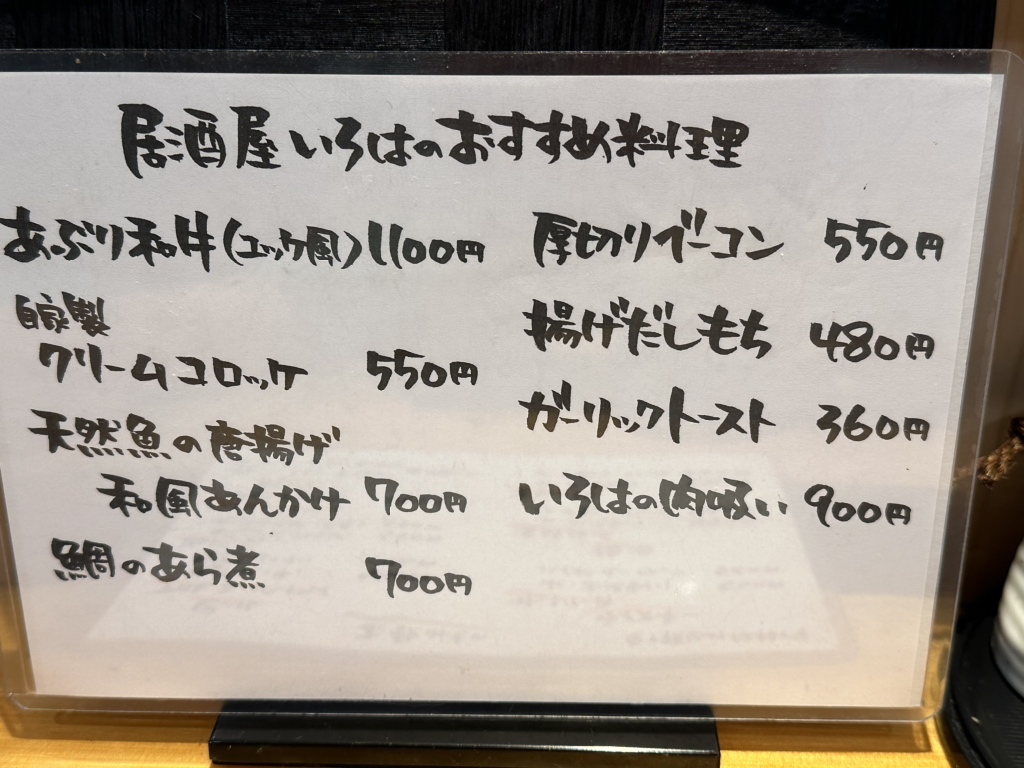 居酒屋いろはのおすすめ料理
あぶり和牛(ユッケ風)1100円
自家製
クリームコロッケ 550円
天然魚の唐揚げ
和風あんかけ 700円
鯛のあら煮 700円
厚切りベーコン 550円
揚げだしもち 480円
ガーリックトースト 360円
いろはの肉吸い 900円